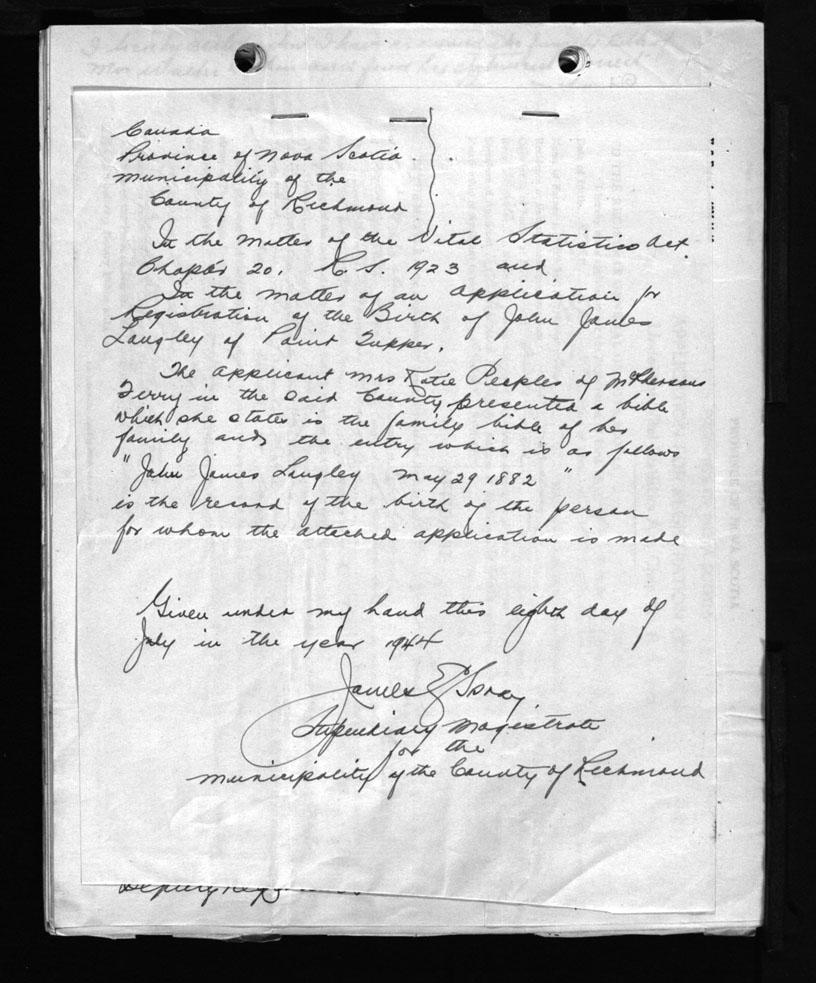 Canada
Province of Nova Scotia
Municipality of the
County of Richmond
In the Matter of the Vital Statistics Act.
Chapter 20. R. S. 1923 and
In the matter of an Application for
Registration of the Birth of John James
Langley of Point Tupper.
The applicant Mrs Katie Peeples of McPhersons
Ferry in the said County presented a bible
which she states is the family bible of her
family and the entry which is as follows
"John James Langley May 29 1882"
is the record of the birth of the person
for whom the attached application is made
Given under my hand this eighth day of
July in the year 1944
James E
Stipendiary Magistrate
for the
Municipality of the County of Richmond
Deputy